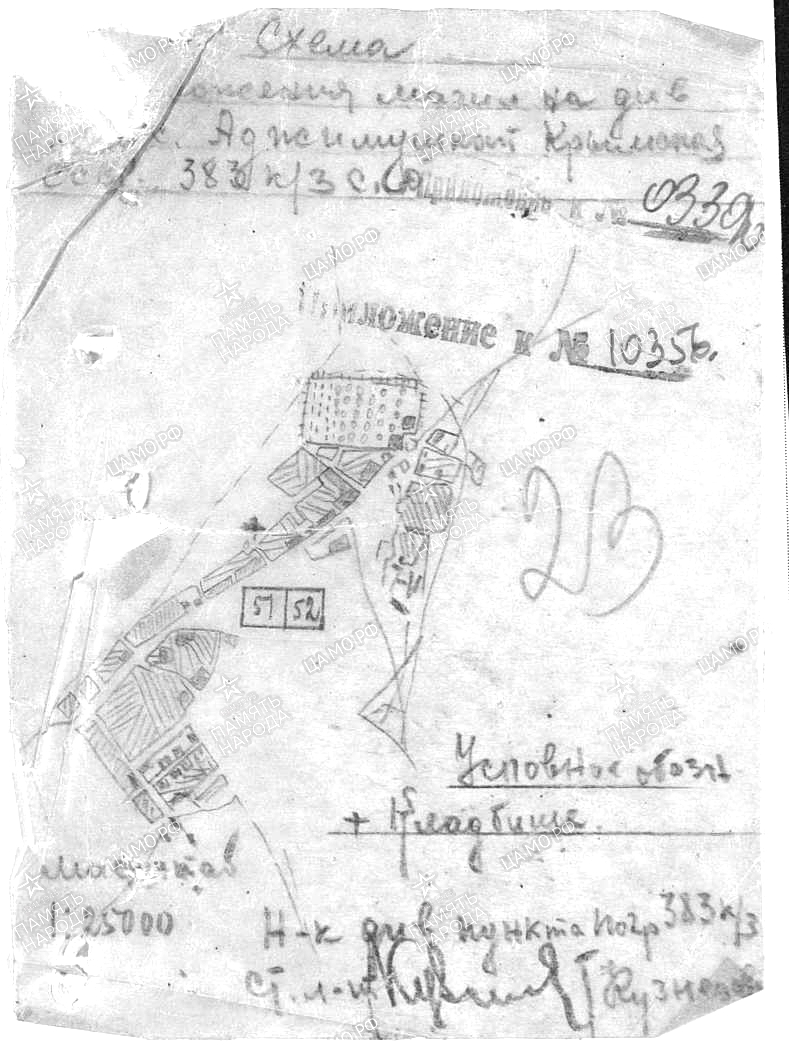 Схема
ожения могил на див
с. Аджимушкай Крымской
ССР. 383 к/з с.д
Приложение к № 0330
Приложение к № 10356.
23
51 52
Условное обозн
+ Кладбище.
Масштаб
1:25000
Н-к див пункта погр 383 к/з
Ст. л-т Кузнецов
ПАМЯТЬ НАРОДА
ЦАМО РФ